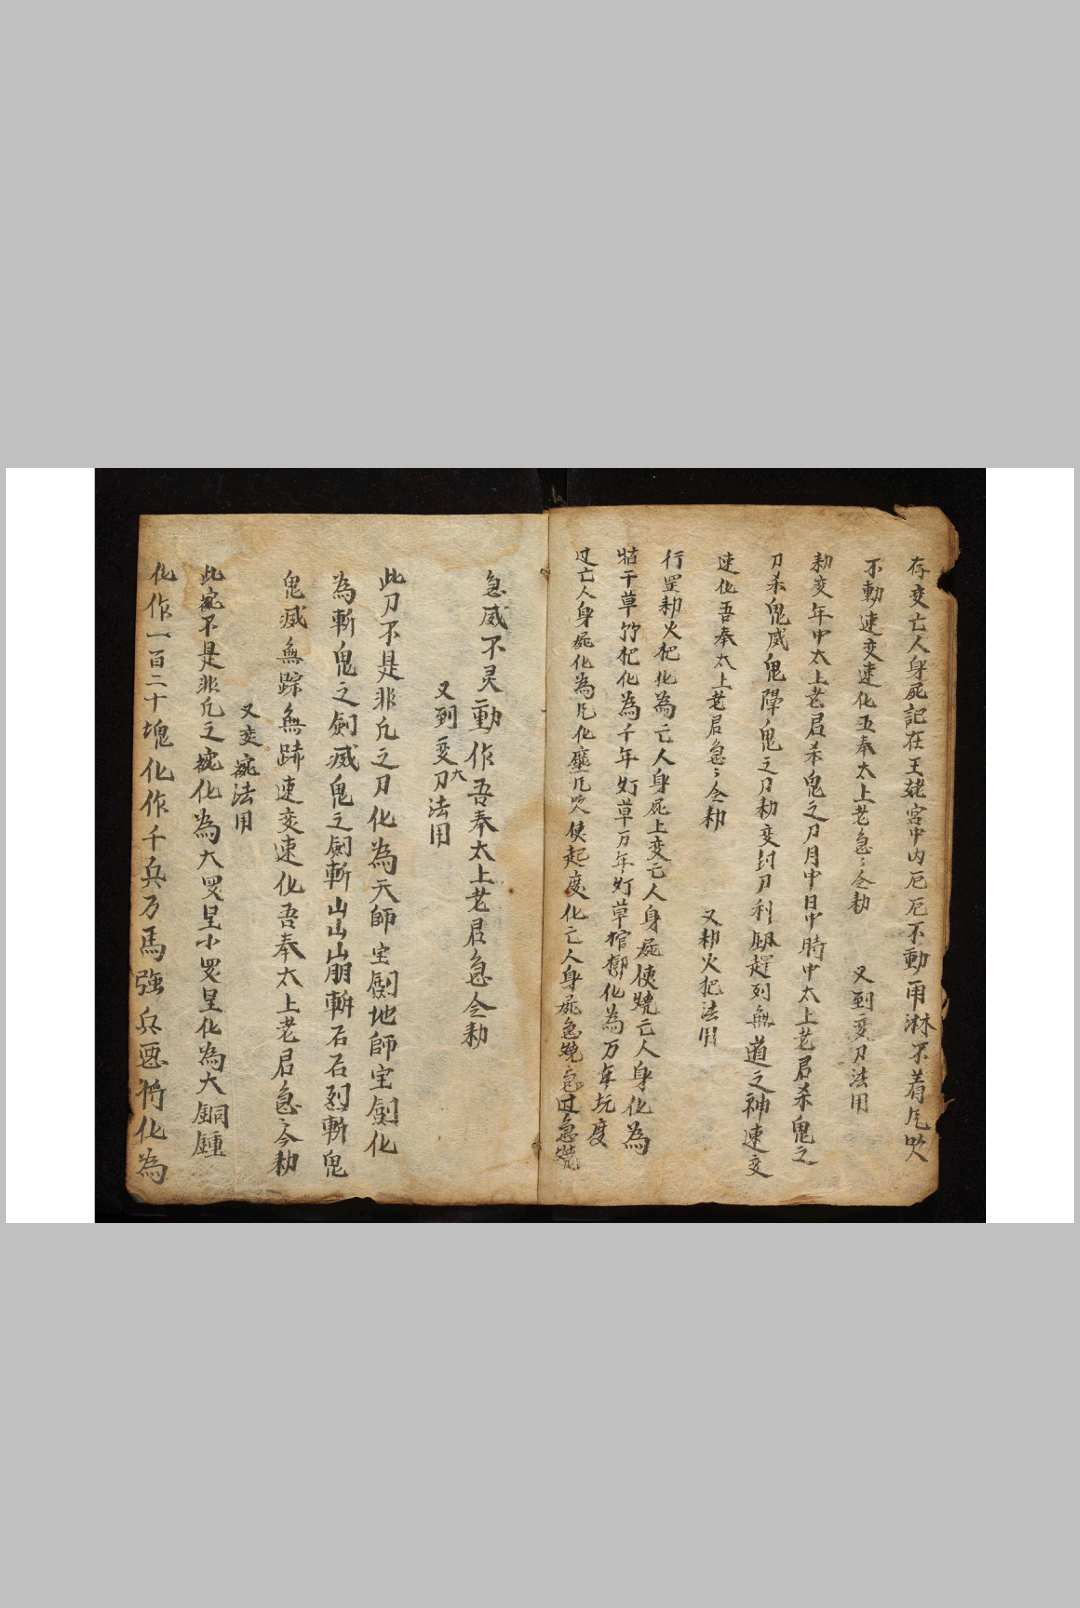 存变亡人身死記在王姥宮中内厄厄不動雨淋不着凡吹
不動速变速化五奉太上老急〻令勅
又到变刀法用
勅变年中太上老君杀鬼之刀月中日中時中太上老君杀鬼之
刀杀鬼威鬼降鬼之刀勅变封刀利趕列無道之神速变
速化吾奉太上老君急〻令勅
又勅火把法用
行罡勅火把化為亡人身死上变亡人身屍使燒亡人身化為
千草竹把化為千年灯草万年灯草棺槨化為万年坑度
过亡人身屍化為凡化塵凡吹使起度化亡人身屍急燒急过急燒
急威不灵動作吾奉太上老君急令勅
又到变大刀法用
此刀不是非凡之刀化為天師宝劍地師宝劍化
為斬鬼之劍滅鬼之劍斬山山崩斬石石烈斬鬼
鬼滅無踪無跡速变速化吾奉太上老君急〻令勅
又变碗法用
此碗不是非凡之碗化為大罡小罡化為大銅鍾
化作一百二十塊化作千兵万馬強兵惡将化為